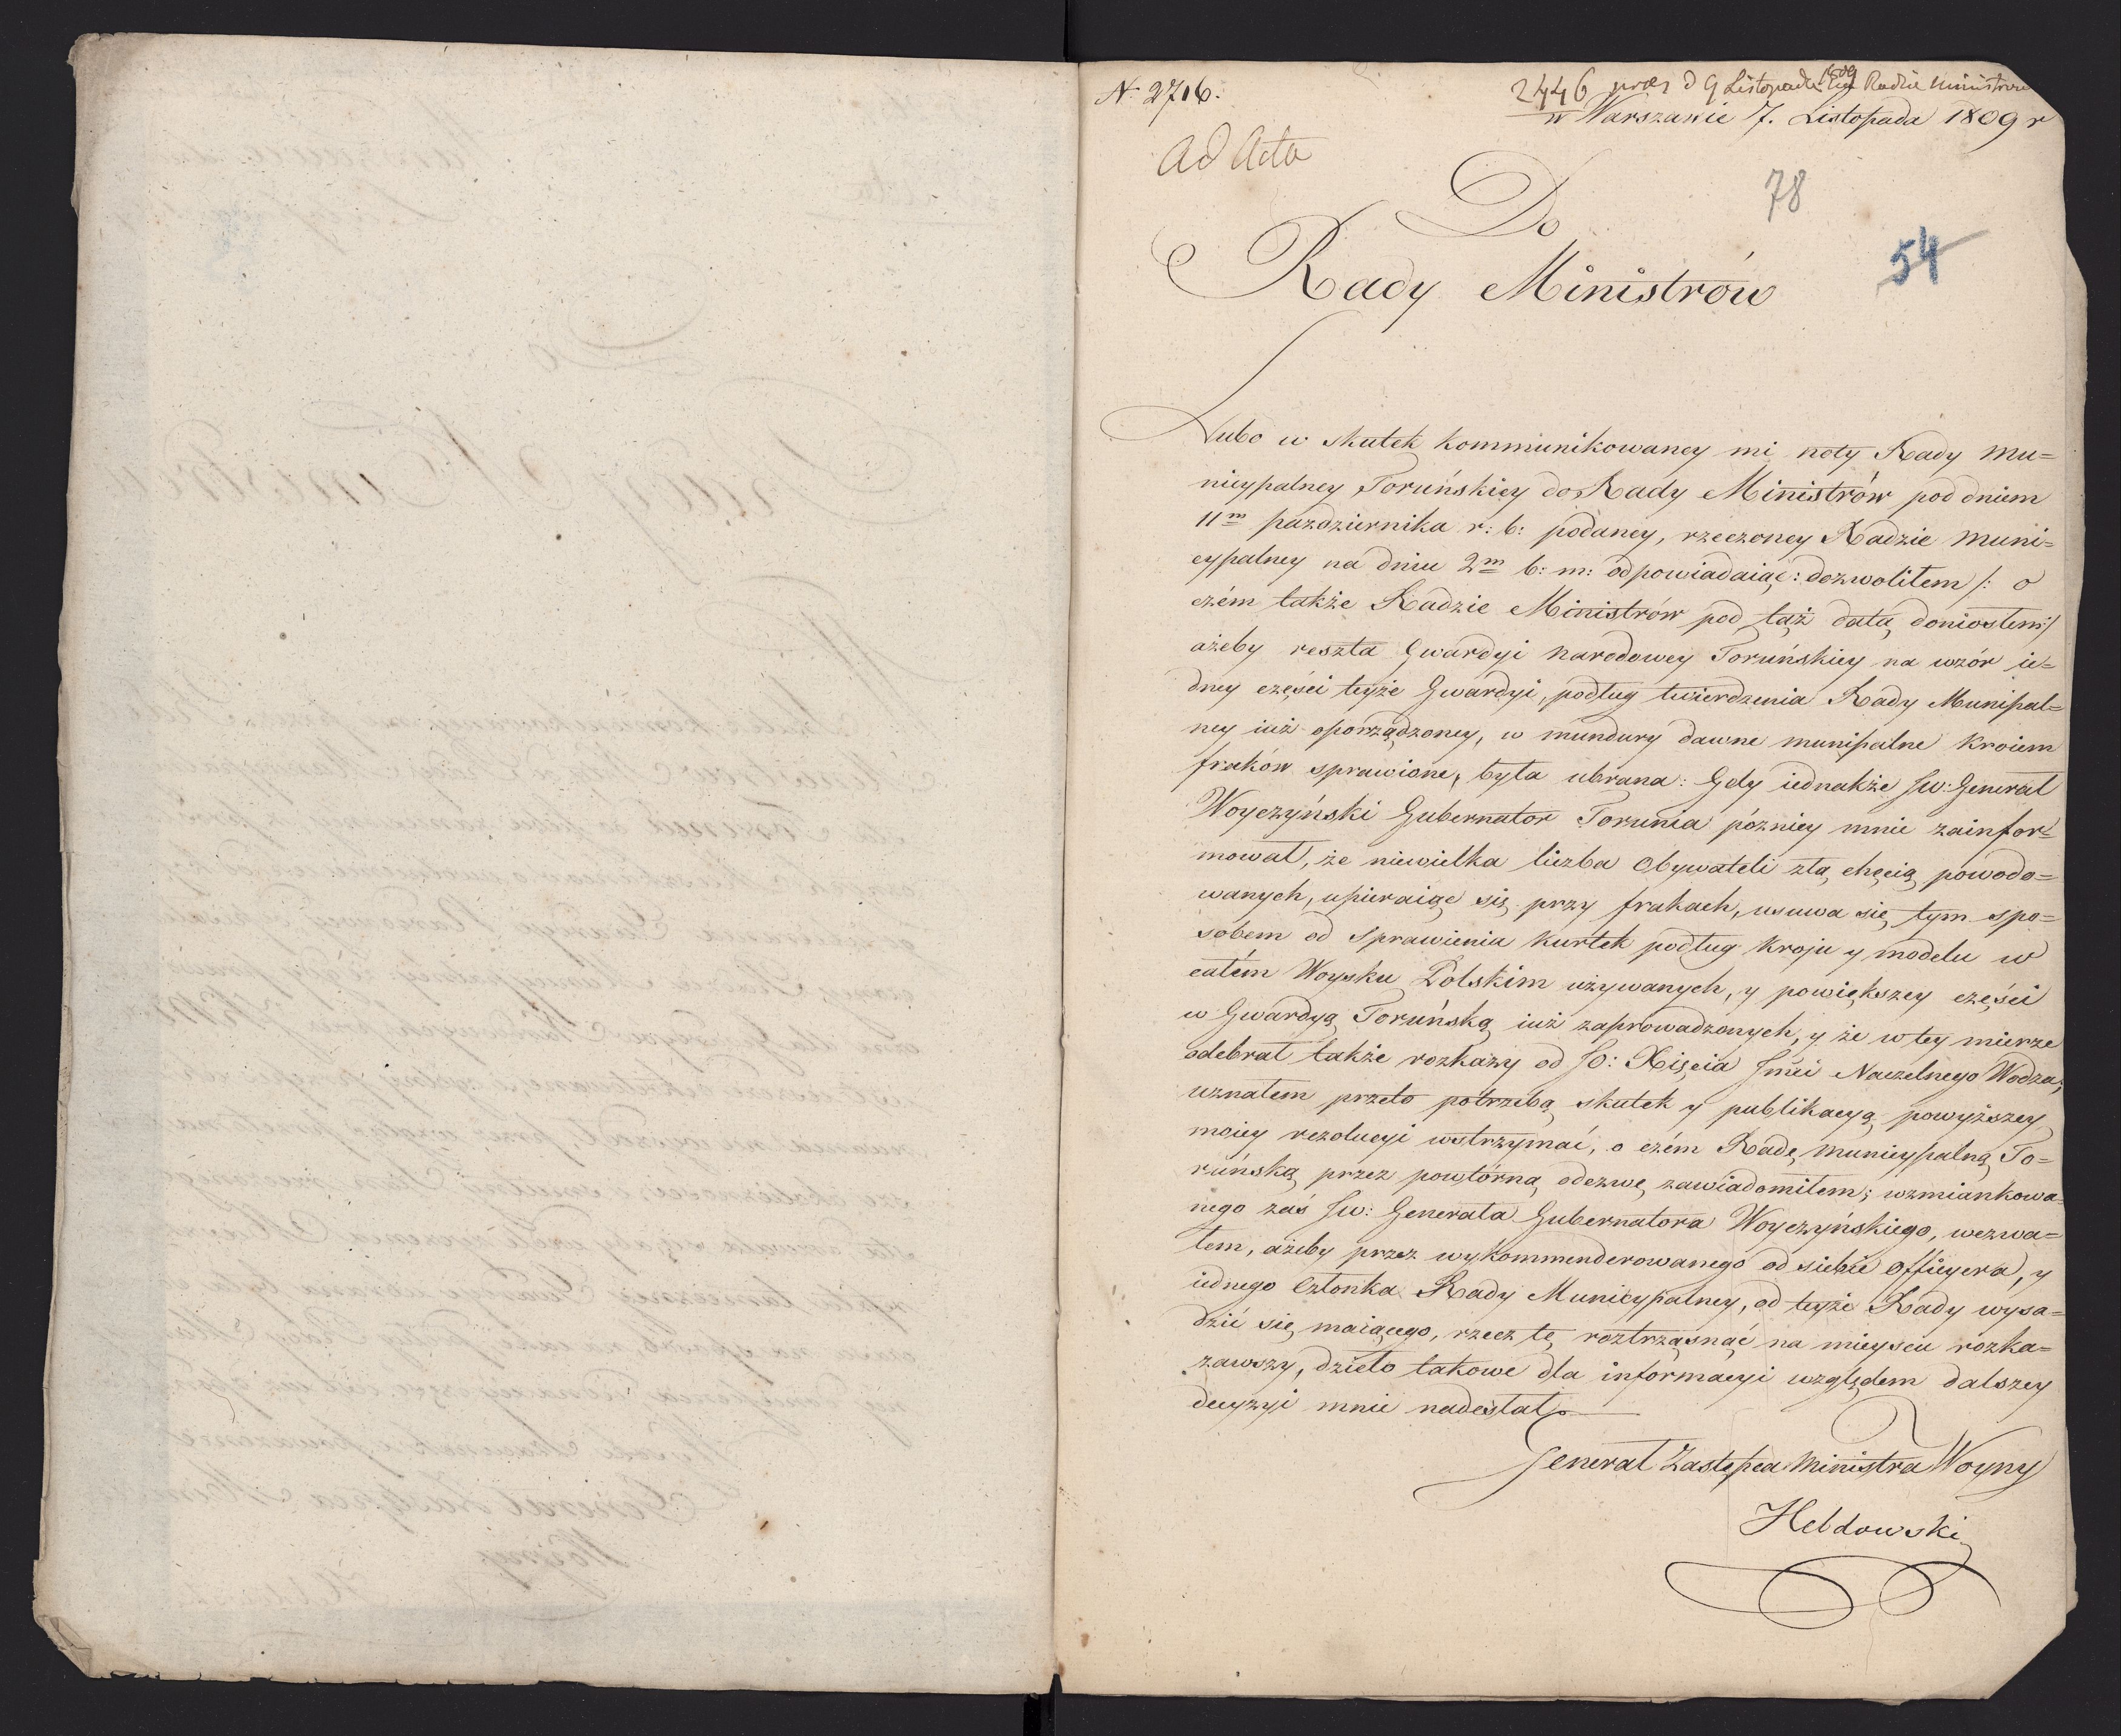 N. 2716.
2446 praes d 9 Listopada 1809 Radzie Ministrów
w Warszawie 7. Listopada 1809 r
ad Acta
78
Do
54
Rady Ministrów
Lubo w skutek kommunikowaney mi noty Rady Mu=
nicypalney Toruńskiey do Rady Ministrów pod dniem
11m pazdziernika r: b: podaney, rzeczoney Radzie Muni=
cypalney na dniu 2m b: m: odpowiadaiąc: dozwoliłem /: o
czém także Radzie Ministrów pod tąż datą doniosłem:/
ażeby reszta Gwardyi Narodowey Toruńskiey na wzór ie=
dney części teyże Gwardyi, podług twierdzenia Rady Munipal=
ney iuż oporządzoney, w mundury dawne munipalne kroiem
fraków sprawione, była ubrana: Gdy iednakże JW: Generał
Woyczyński Gubernator Torunia pózniey mnie zainfor=
mował, że niewielka liczba Obywateli złą chęcią powodo=
wanych, upieraiąc się przy frakach, usuwa się tym spo=
sobem od sprawienia kurtek podług kroju y modelu w
całém Woysku Polskim używanych, y powiększey części
w Gwardyą Toruńską iuż zaprowadzonych, y że w tey mierze
odebrał także rozkazy od JO: Xięcia Jmći Naczelnego Wodza;
uznałem przeto potrzebą skutek y publikacyą powyższey
moiey rezolucyi wstrzymać, o czém Radę Municypalną To=
ruńską przez powtórną odezwę zawiadomiłem; wzmiankowa=
nego zaś JW: Generała Gubernatora Woyczyńskiego, wezwa=
łem, ażeby przez wykommenderowanego od siebie Officyera, y
iednego Członka Rady Municypalney, od teyże Rady wysa=
dzić się maiącego, rzecz tę roztrząsnąć na mieyscu rozka=
zawszy, dzieło takowe dla informacyi względem dalszey
decyzyi mnie nadesłał
Generał Zastępca Ministra Woyny
Hebdowski